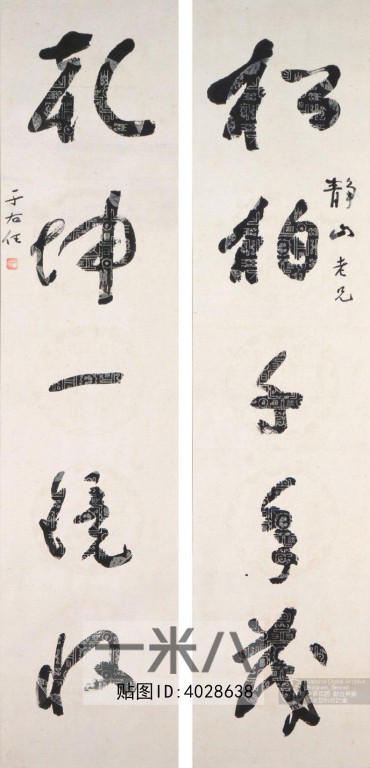 松柏千年茂
静山老兄
乾坤一鏡收
于右任
一米八
贴图ID:4028638